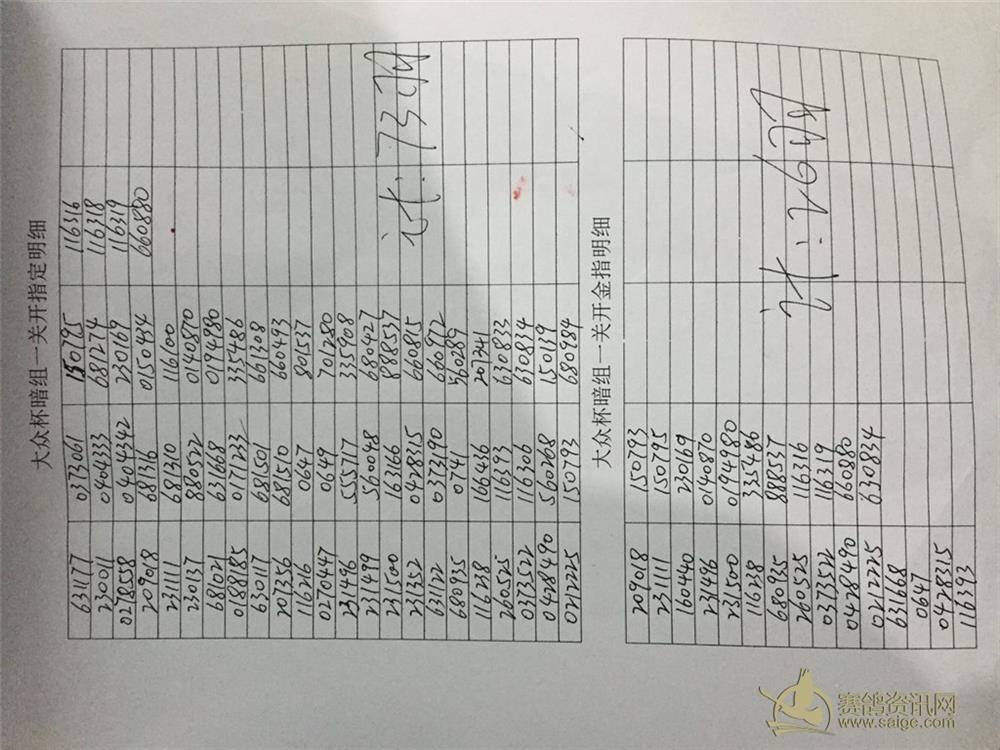 大众杯暗组一关开指定明细
631177 0373061 150795 116316
230011 0404333 681274 116318
0278558 0404342 230169 116319
209018 681316 0150434 660880
231111 681310 116100
230137 880522 0140870
681021 631668 0194980
0188185 0171233 335486
630117 681501 661308
207356 681510 660493
116216 0647 801537
0270447 0649 701280
231496 555717 335908
231499 560048 680427
231500 163166 888537
221352 0428315 660815
631122 0373190 660972
680935 0741 560289
116238 166436 207341
260525 116393 630833
0373522 116306 630834
0428490 560268 150139
0212225 150793 680984
计:73羽
大众杯暗组一关开金指明细
209018 150793
231111 150795
160440 230169
231496 0140870
231500 0194980
116238 335486
680935 888537
260525 116316
0373522 116319
0428490 660880
0212225 630834
631668
0647
0428315
116393
计:26羽
赛鸽资讯网
www.saige.com